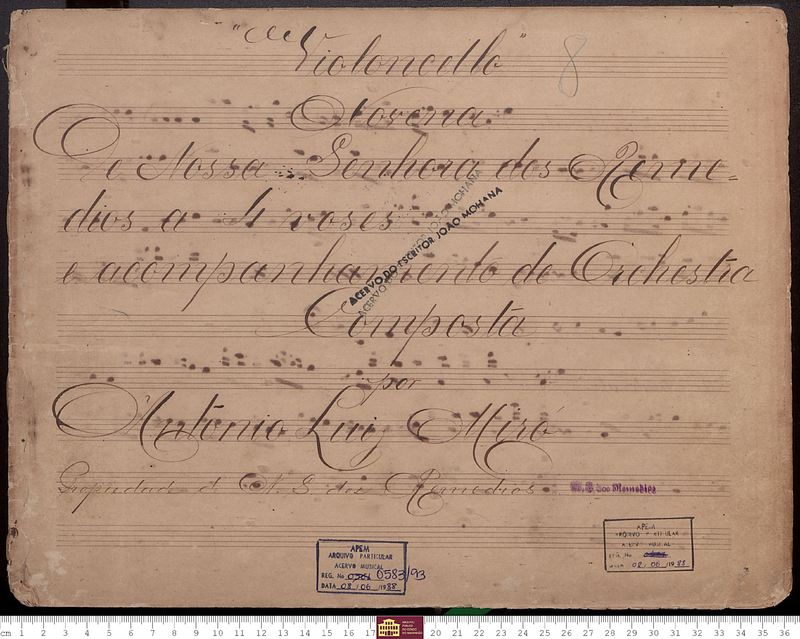 "Violoncello"
8
Novena
De Nossa Senhora dos Reme=
dios a 4 voses
e acompanhamento de Orchestra
Composta
por
Antonio Luiz Miró
Propriedade d N. S. dos Remedios
N. S. dos Remedios
ACERVO DO ESCRITOR JOÃO MOHANA
ACERVO DO ESCRITOR JOÃO MOHANA
APEM
ARQUIVO PARTICULAR
ACERVO MUSICAL
REG. No 0583/93
DATA 08/06/1988
APEM
ARQUIVO PARTICULAR
ACERVO MUSICAL
REG. No
DATA 08/06/1988
cm 1 2 3 4 5 6 7 8 9 10 11 12 13 14 15 16 17 20 21 22 23 24 25 26 27 28 29 30 31 32 33 34 35 36